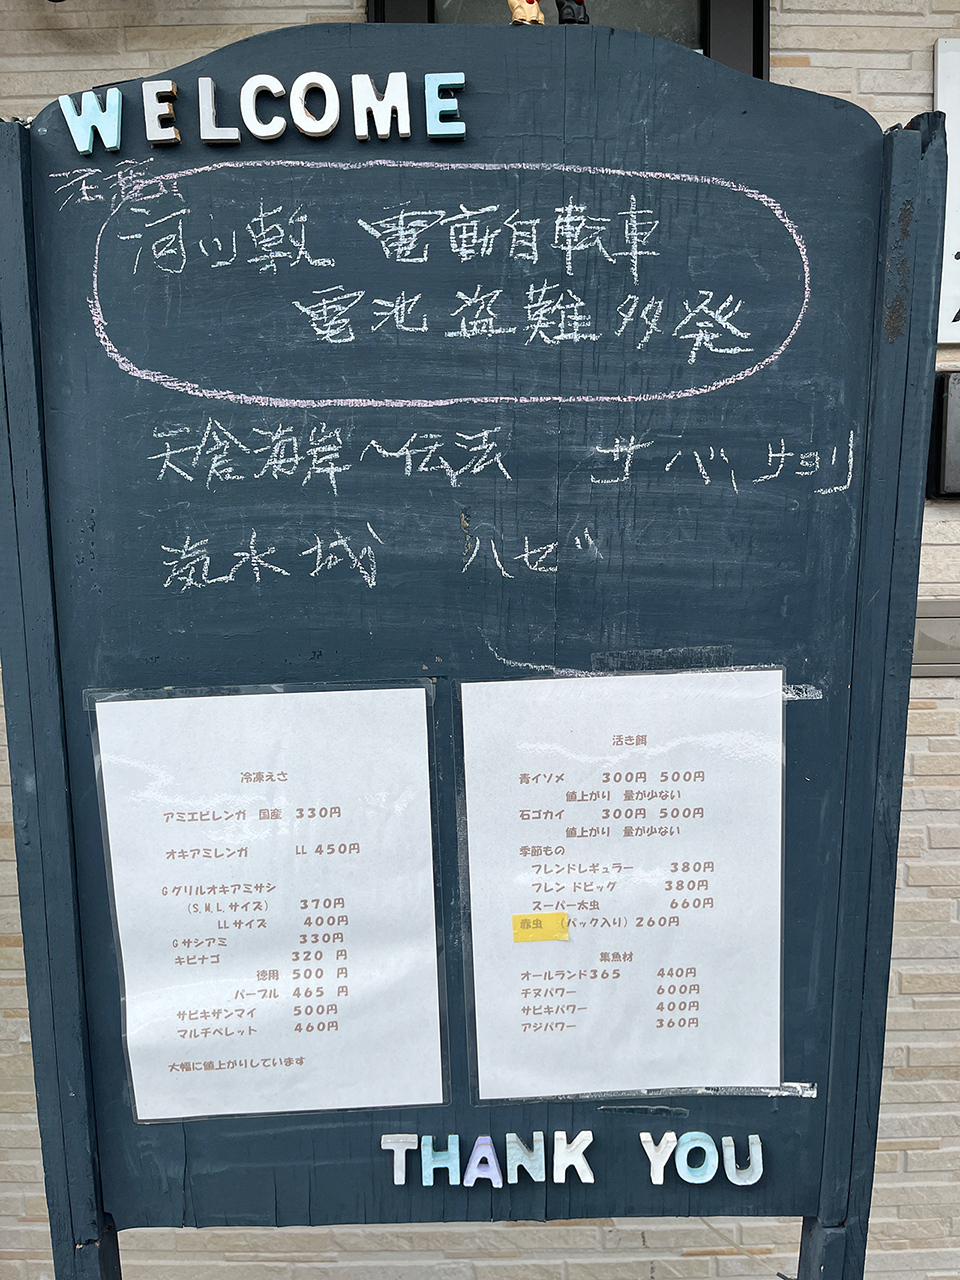 WELCOME
注意!!
河川敷 電動自転車
電池盗難多発
天倉海岸〜伝法 サバ サヨリ
汽水域 ハゼ
冷凍えさ
アミエビレンガ 国産 330円
オキアミレンガ LL 450円
Gグリルオキアミサシ
(S.M.L.サイズ) 370円
LLサイズ 400円
Gサシアミ 330円
キビナゴ 320 円
徳用 500 円
パープル 465 円
サビキザンマイ 500円
マルチペレット 460円
大幅に値上がりしています
活き餌
青イソメ 300円 500円
値上がり 量が少ない
石ゴカイ 300円 500円
値上がり 量が少ない
季節もの
フレンドレギュラー 380円
フレンドビッグ 380円
スーパー太虫 660円
赤虫 (パック入り) 260円
集魚材
オールランド365 440円
チヌパワー 600円
サビキパワー 400円
アジパワー 360円
THANK YOU